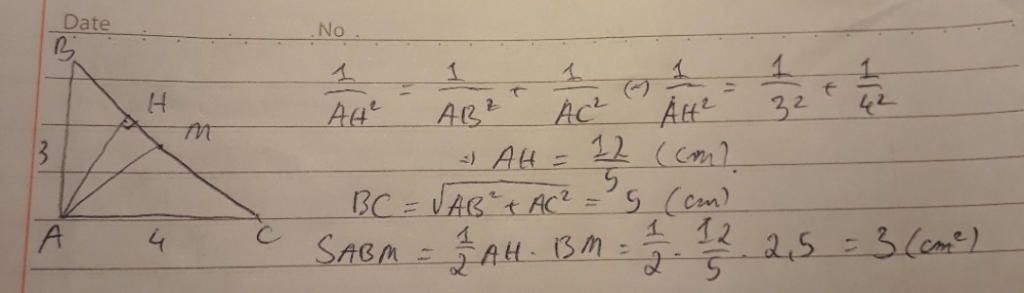 Date No
B
H
M
3
A 4 C
1/AH² = 1/AB² + 1/AC² (=) 1/AH² = 1/3² + 1/4²
=) AH = 12/5 (cm).
BC = √AB² + AC² = 5 (cm)
SABM = 1/2 AH . BM = 1/2 . 12/5 . 2,5 = 3 (cm²)